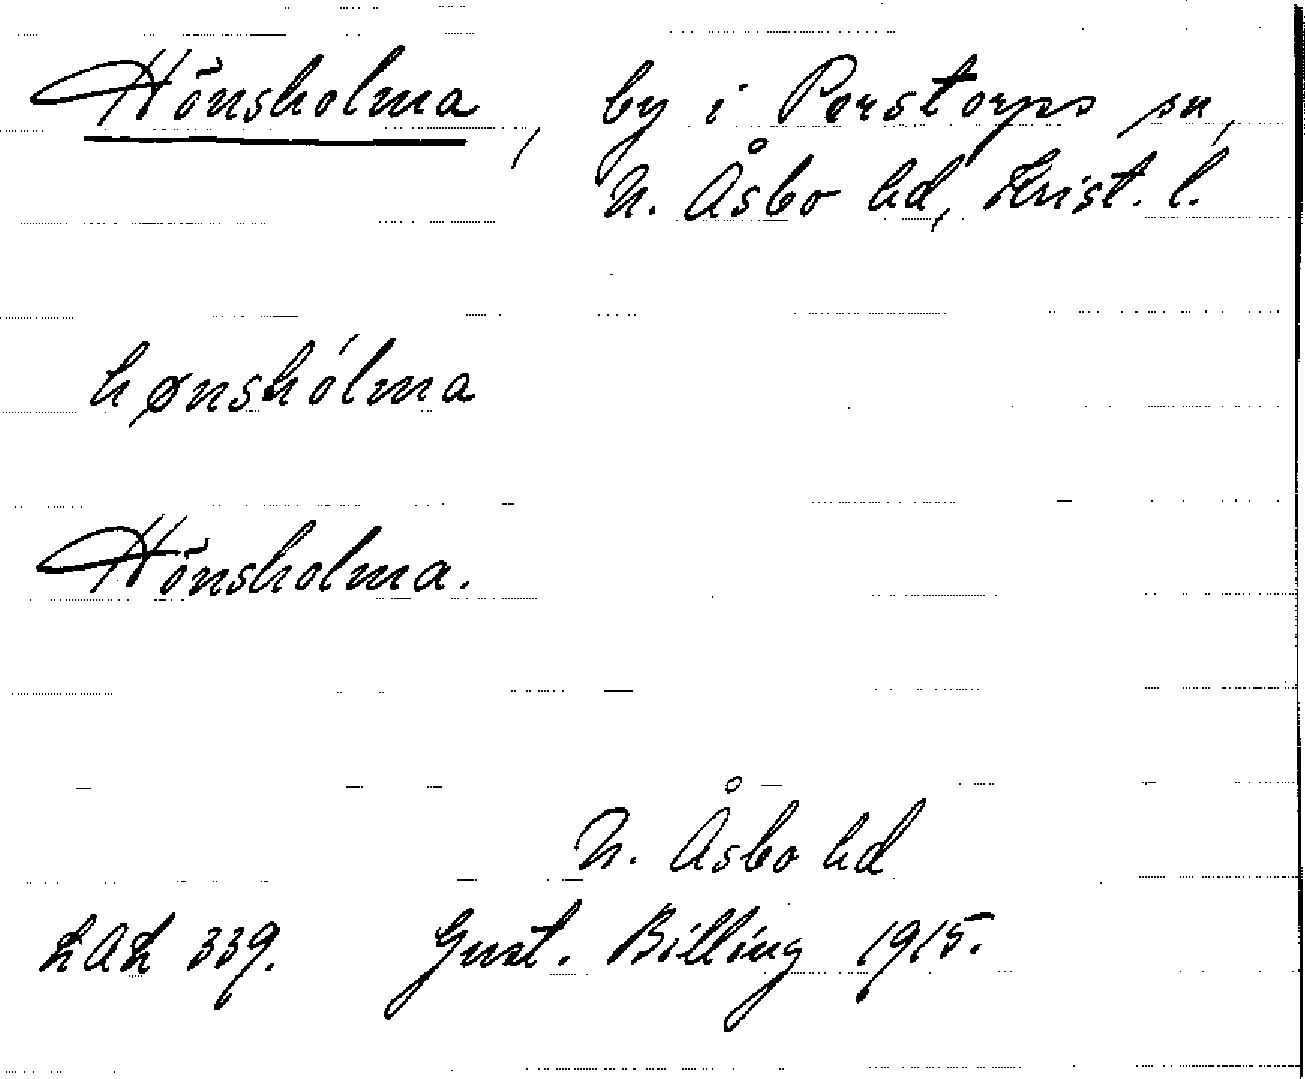 Hönsholma, by i Perstorps sn,
N. Åsbo hd, Krist. l.
hønshólma
Hönsholma.
N. Åsbo hd
LAL 339. Gust. Billing 1915.